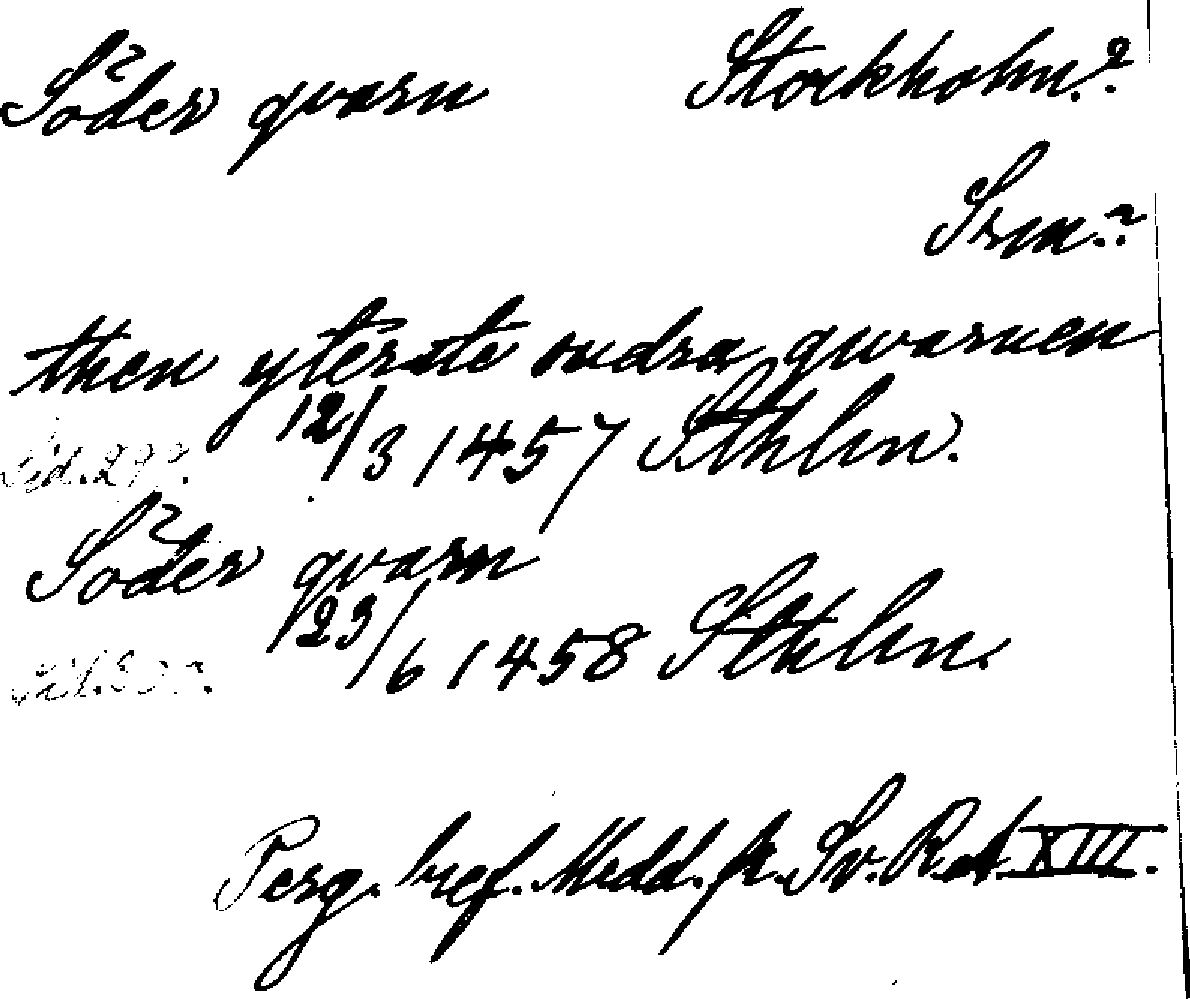 Söder qvarn Stockholm.?
Srm.?
then yterste sudra qwarnen
12/3 1457 Sthlm.
Söder qvarn
23/6 1458 Sthlm.
Perg. bref. Medd. fr. Sv. R.A. XIII.